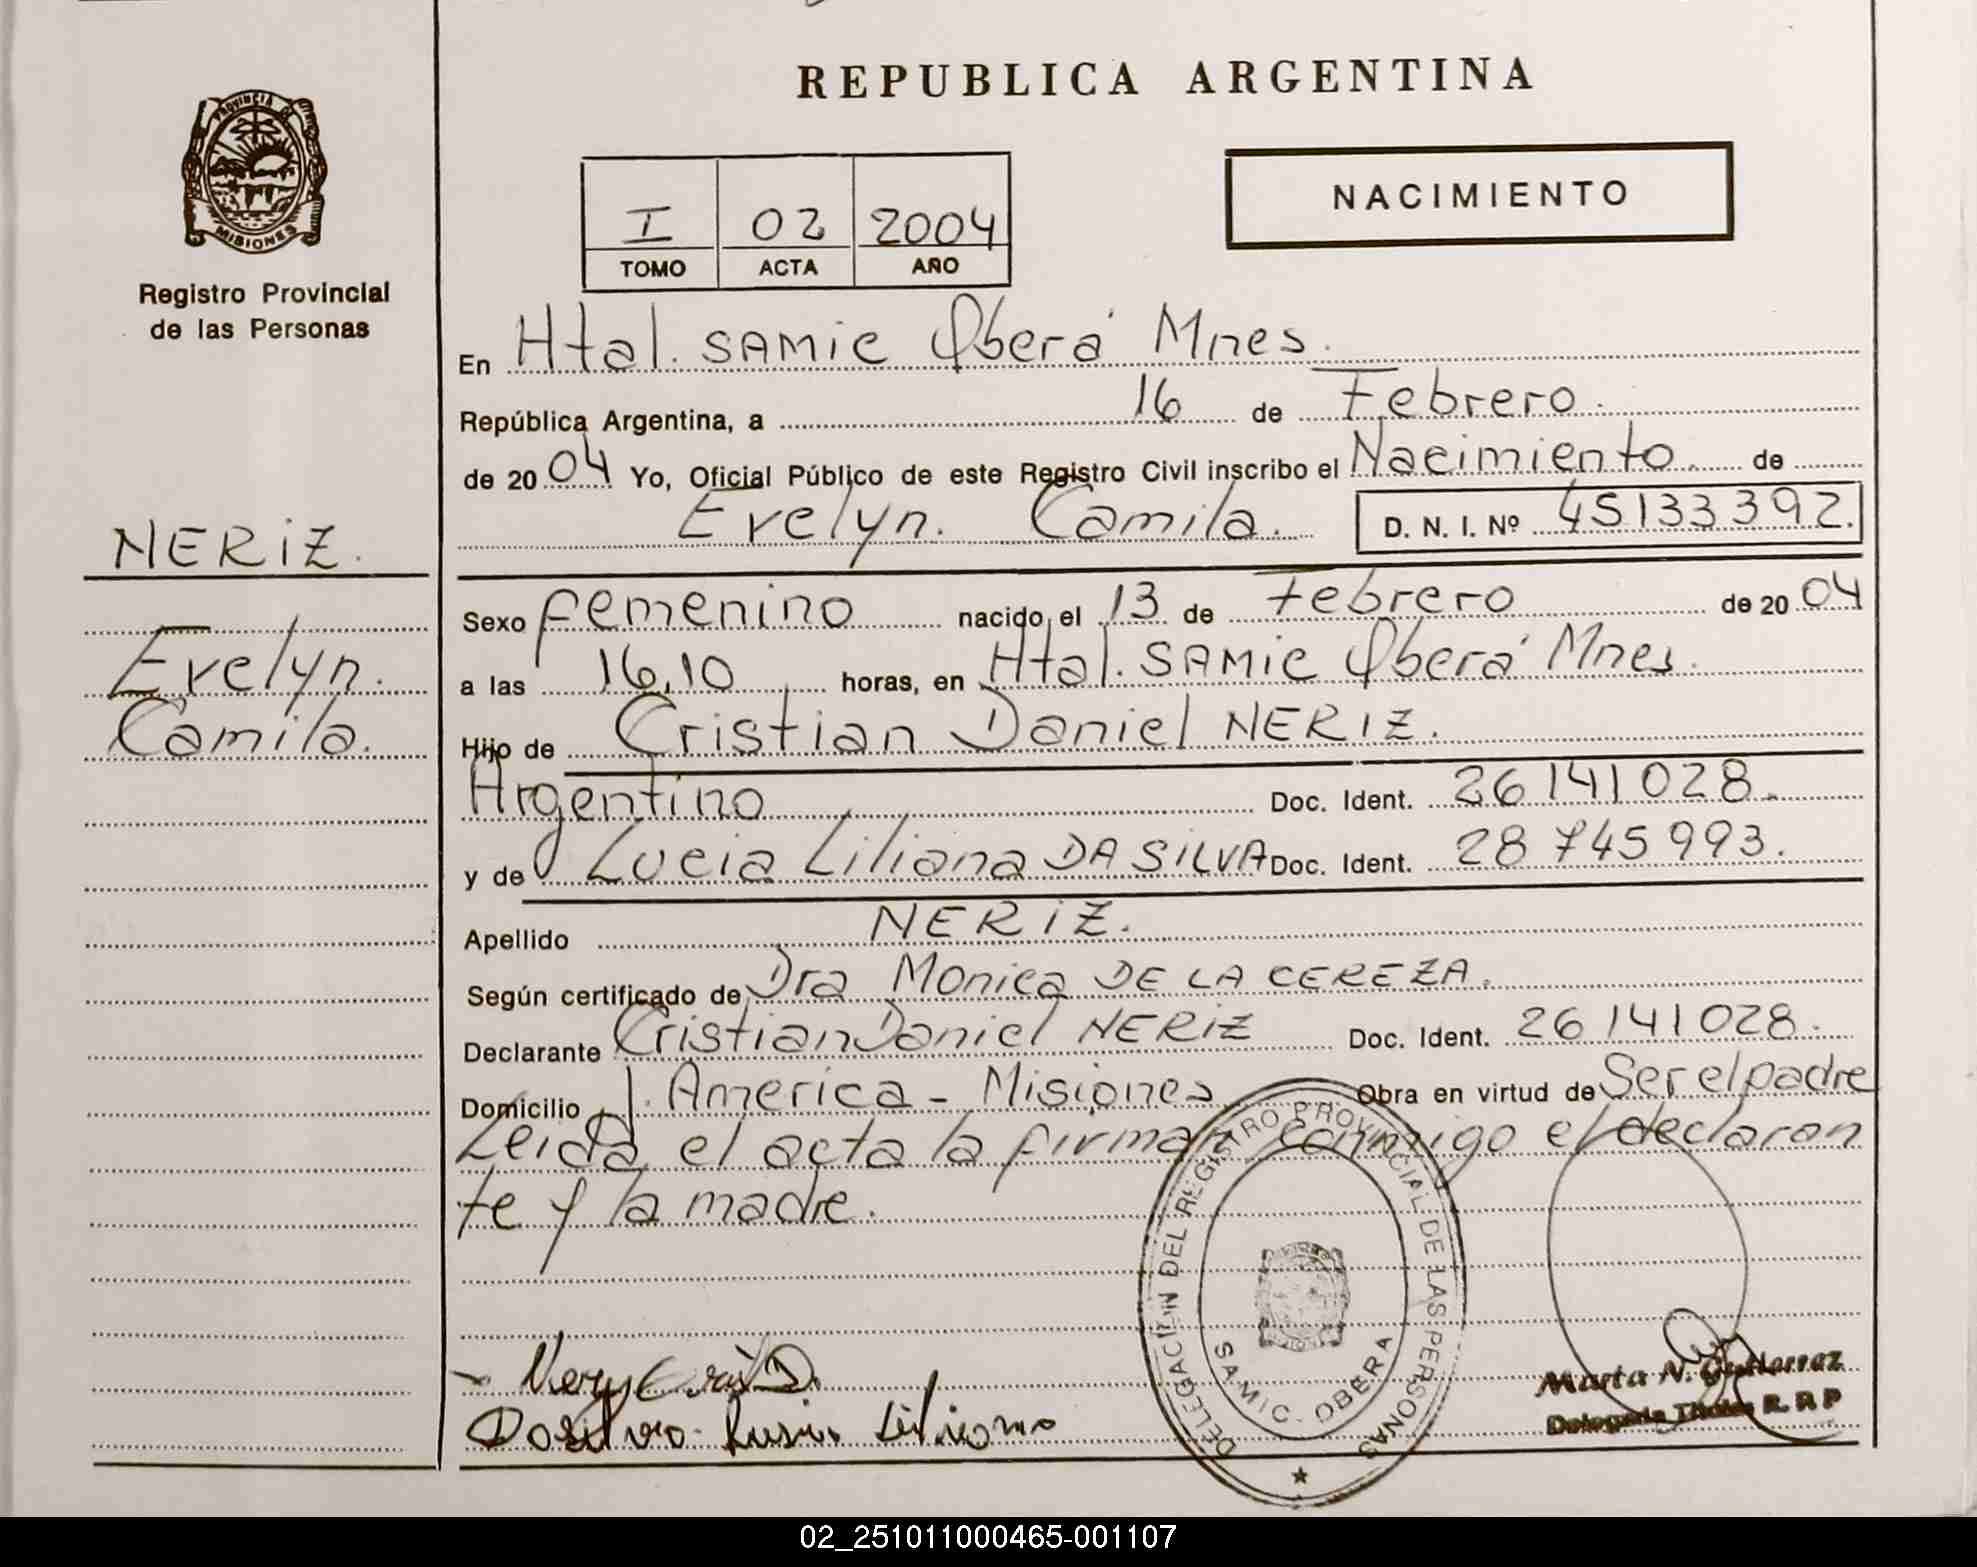 REPUBLICA ARGENTINA
PROVINCIA DE
MISIONES
Registro Provincial
de las Personas
I 02 2004
TOMO ACTA AÑO
NACIMIENTO
En Htal. SAMIC Oberá Mnes.
República Argentina, a 16 de Febrero.
de 2004 Yo, Oficial Público de este Registro Civil inscribo el Nacimiento de
Evelyn. Camila. D. N. I. Nº 45133392.
NERIZ.
Evelyn.
Camila.
Sexo femenino nacido el 13 de Febrero de 2004
a las 16,10 horas, en Htal. SAMIC Oberá Mnes.
Hijo de Cristian Daniel NERIZ.
Argentino Doc. Ident. 26141028.
y de Lucia Liliana DA SILVA Doc. Ident. 28745993.
Apellido NERIZ.
Según certificado de Dra Monica DE LA CEREZA.
Declarante Cristian Daniel NERIZ Doc. Ident. 26141028.
Domicilio J. America - Misiones Obra en virtud de Ser el padre
Leida el acta la firman conmigo el declaran
te y la madre.
DELEGACION DEL REGISTRO PROVINCIAL DE LAS PERSONAS
SAMIC - OBERA
Marta N. Gutierrez
Delegada Titular R. P. P
Liliana
02_251011000465-001107